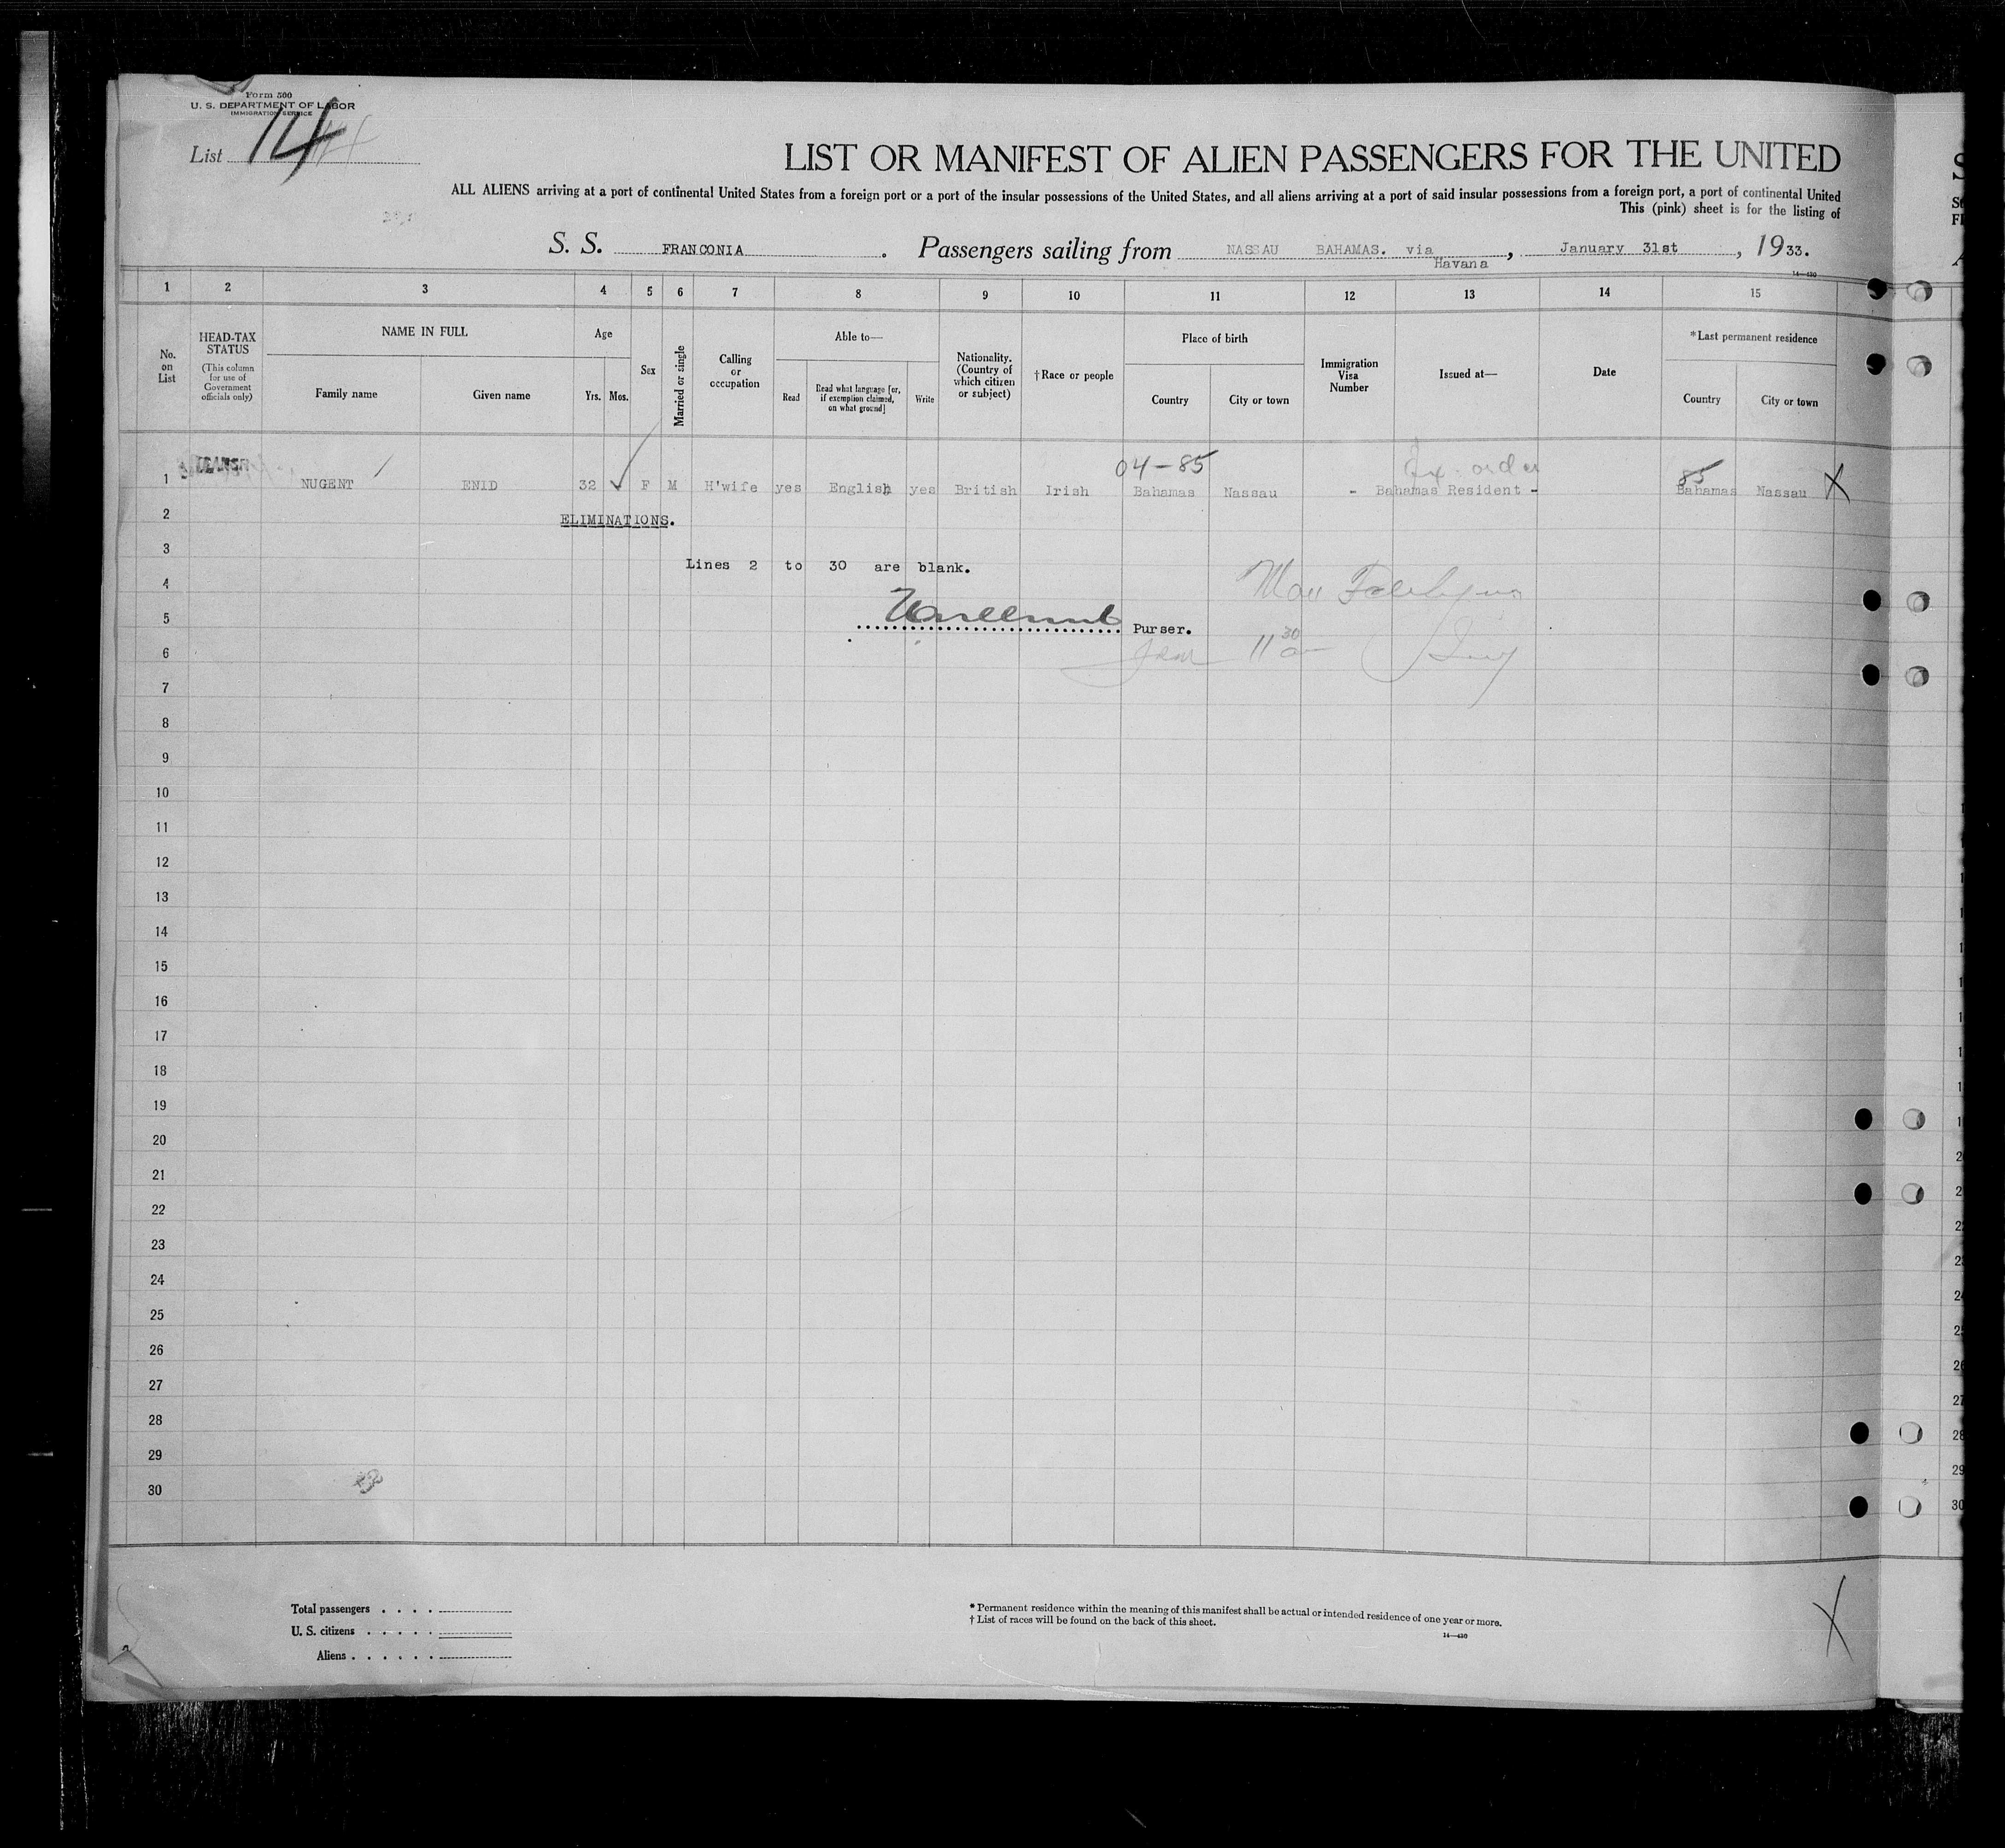 Form 500
U. S. DEPARTMENT OF LABOR
IMMIGRATION SERVICE
List 14
LIST OR MANIFEST OF ALIEN PASSENGERS FOR THE UNITED
ALL ALIENS arriving at a port of continental United States from a foreign port or a port of the insular possessions of the United States, and all aliens arriving at a port of said insular possessions from a foreign port, a port of continental United
This (pink) sheet is for the listing of
S. S. FRANCONIA. Passengers sailing from NASSAU BAHAMAS. via Havana, January 31st, 1933.
14-430
1 2 3 4 5 6 7 8 9 10 11 12 13 14 15
No. on List
HEAD-TAX STATUS
(This column for use of Government officials only)
NAME IN FULL
Family name Given name
Age
Yrs. Mos.
Sex
Married or single
Calling or occupation
Able to—
Read
Read what language [or, if exemption claimed, on what ground]
Write
Nationality. (Country of which citizen or subject)
†Race or people
Place of birth
Country City or town
Immigration Visa Number
Issued at—
Date
*Last permanent residence
Country City or town
04-85 order 85
1 NUGENT ENID 32 F M H'wife yes English yes British Irish Bahamas Nassau - Bahamas Resident - Bahamas Nassau X
2 ELIMINATIONS.
3
Lines 2 to 30 are blank.
4
5 Purser.
6 11 30
7
8
9
10
11
12
13
14
15
16
17
18
19
20
21
22
23
24
25
26
27
28
29
30
Total passengers . . . .
U. S. citizens . . . . .
Aliens . . . . . .
* Permanent residence within the meaning of this manifest shall be actual or intended residence of one year or more.
† List of races will be found on the back of this sheet.
14-430
X